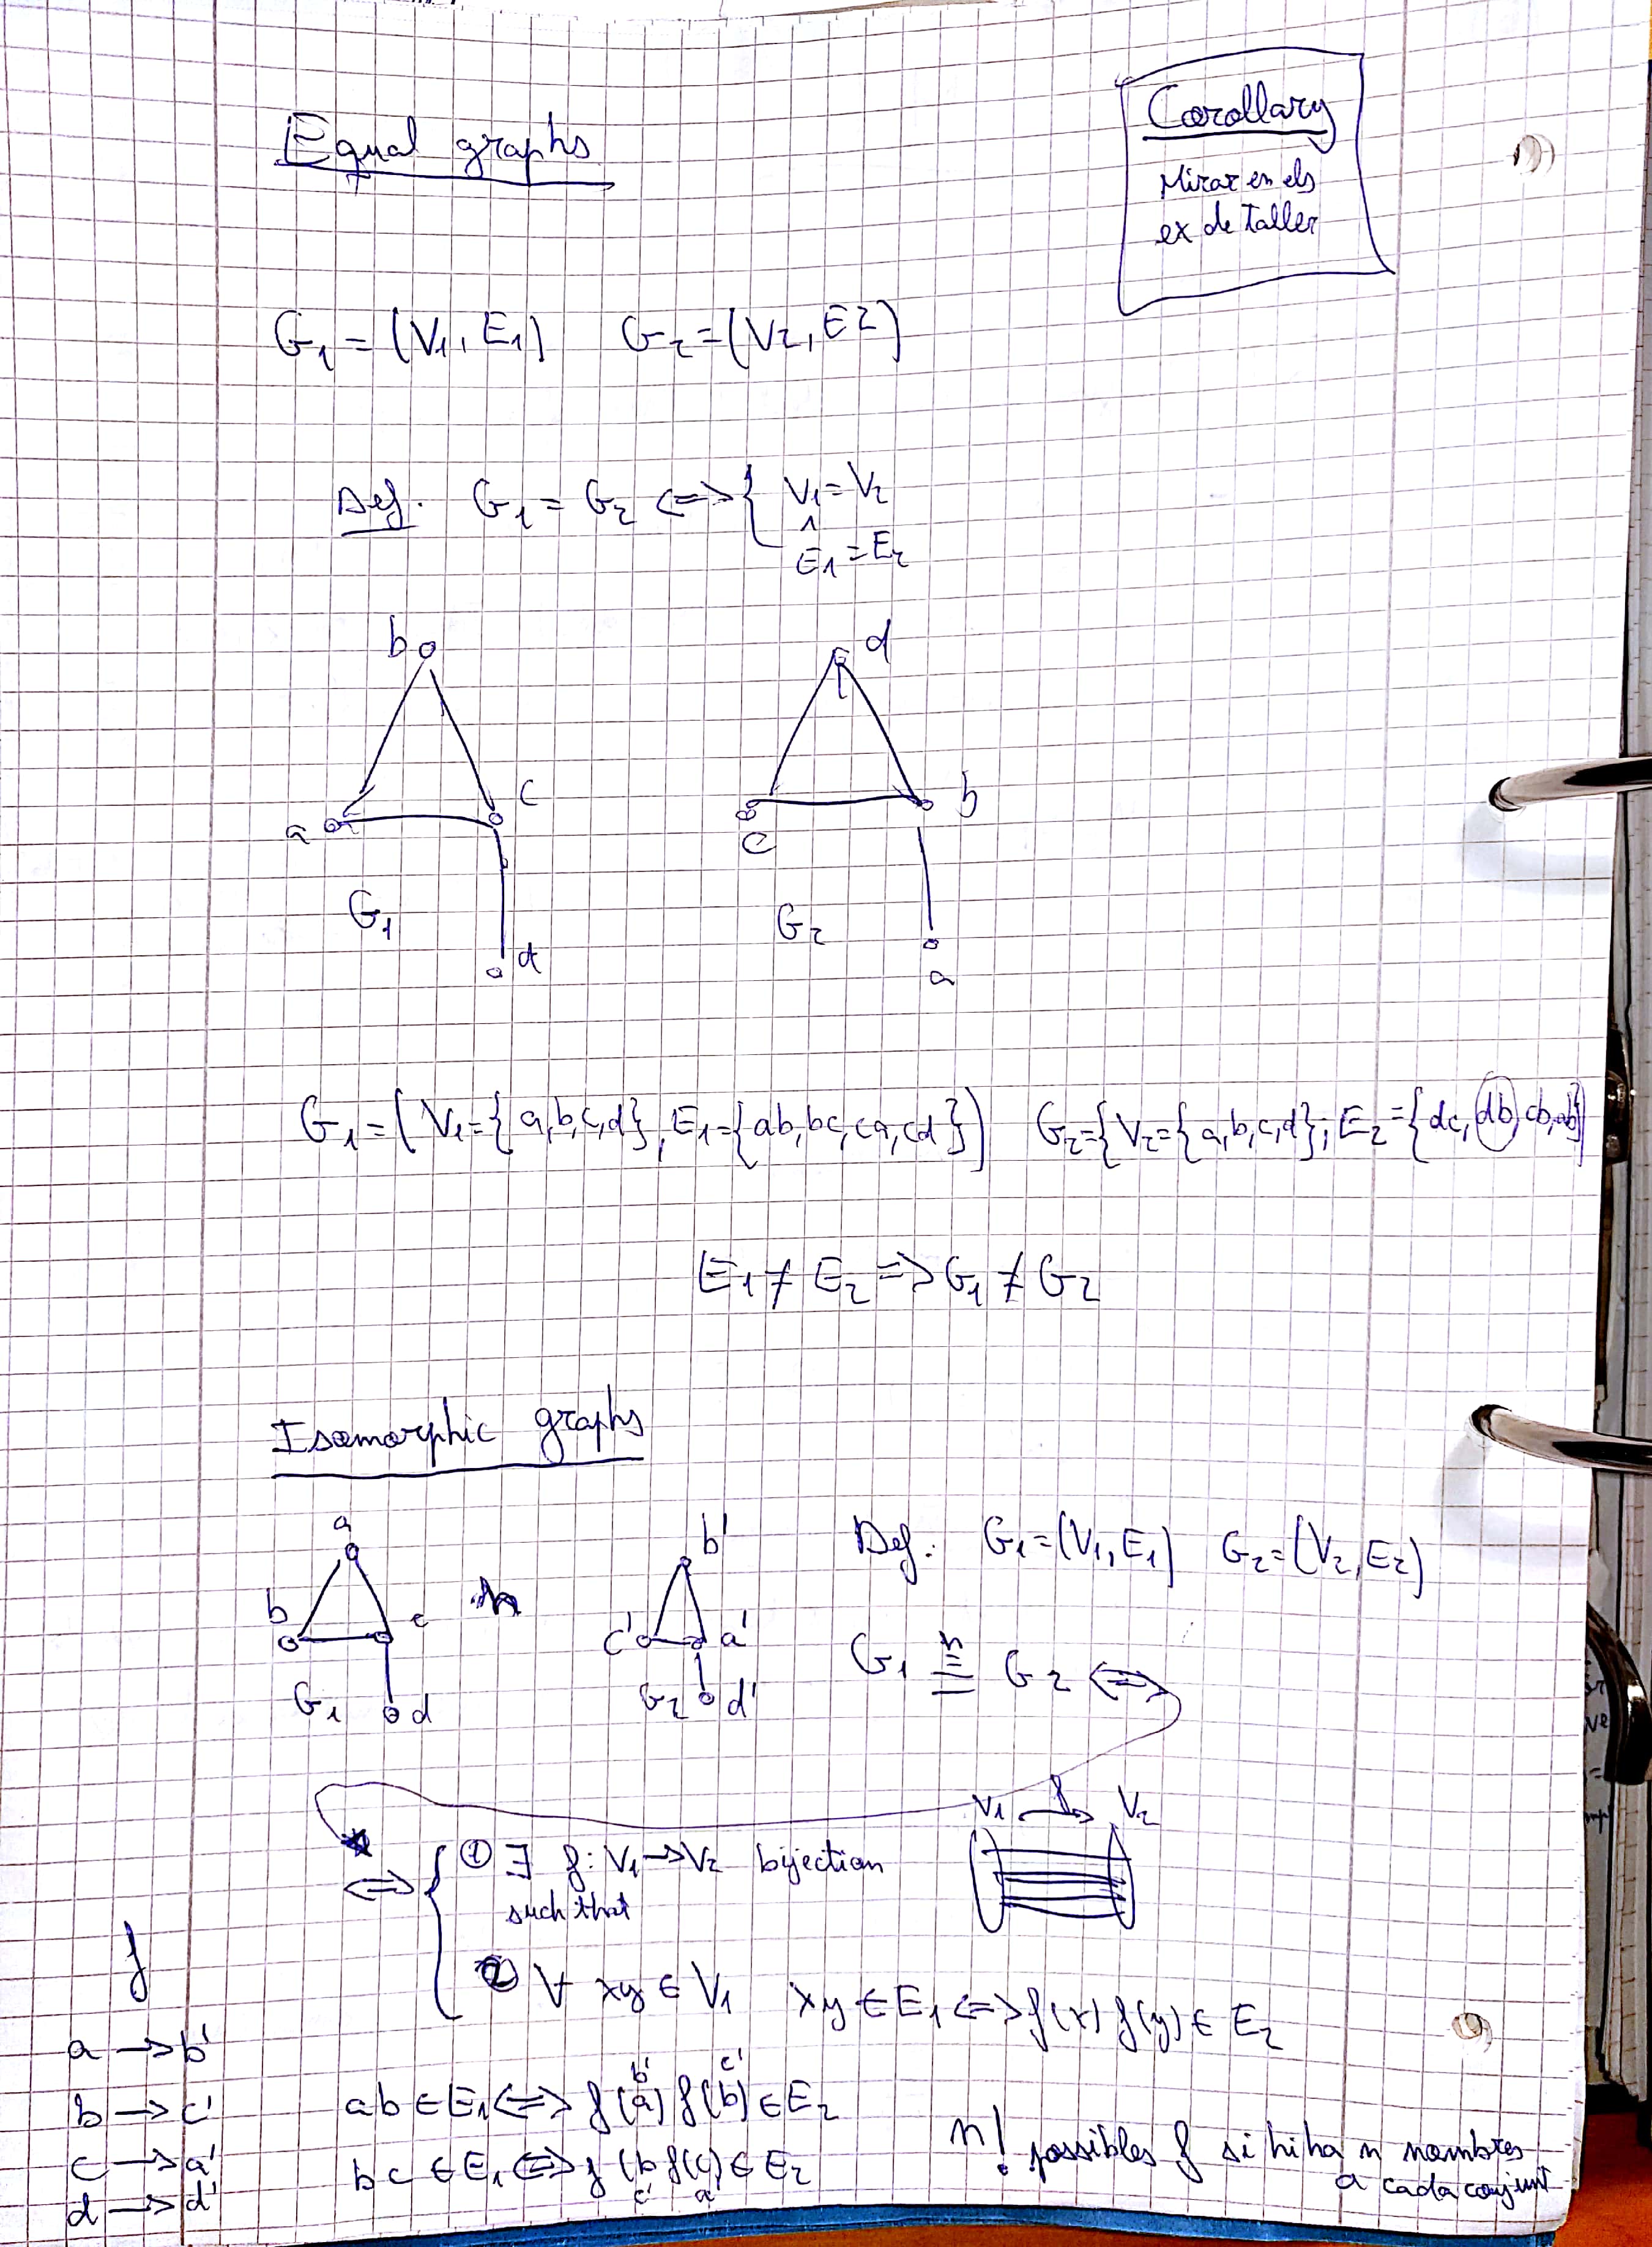 Equal graphs
Corollary
Mirar en els
ex de taller
G1 = (V1, E1)    G2 = (V2, E2)
Def. G1 = G2 <=> { V1 = V2
∧
E1 = E2
b
a
c
d
G1
d
c
b
a
G2
G1 = (V1={a,b,c,d}, E1={ab,bc,ca,cd})    G2={V2={a,b,c,d}; E2={dc, db, cb, ab}}
E1 ≠ E2 => G1 ≠ G2
Isomorphic graphs
a
b
c
G1
d
b'
c'
a'
G2
d'
Def: G1=(V1,E1)    G2=(V2,E2)
G1 ≅ G2 <=>
V1 f→ V2
<=> { ① ∃ f: V1→V2 bijection
such that
② ∀ xy ∈ V1    xy ∈ E1 <=> f(x) f(y) ∈ E2
f
a → b'
b → c'
c → a'
d → d'
b'    c'
ab ∈ E1 <=> f(a) f(b) ∈ E2
bc ∈ E1 <=> f(b f(c) ∈ E2
c'    a'
n! possibles f si hi ha n nombres
a cada conjunt